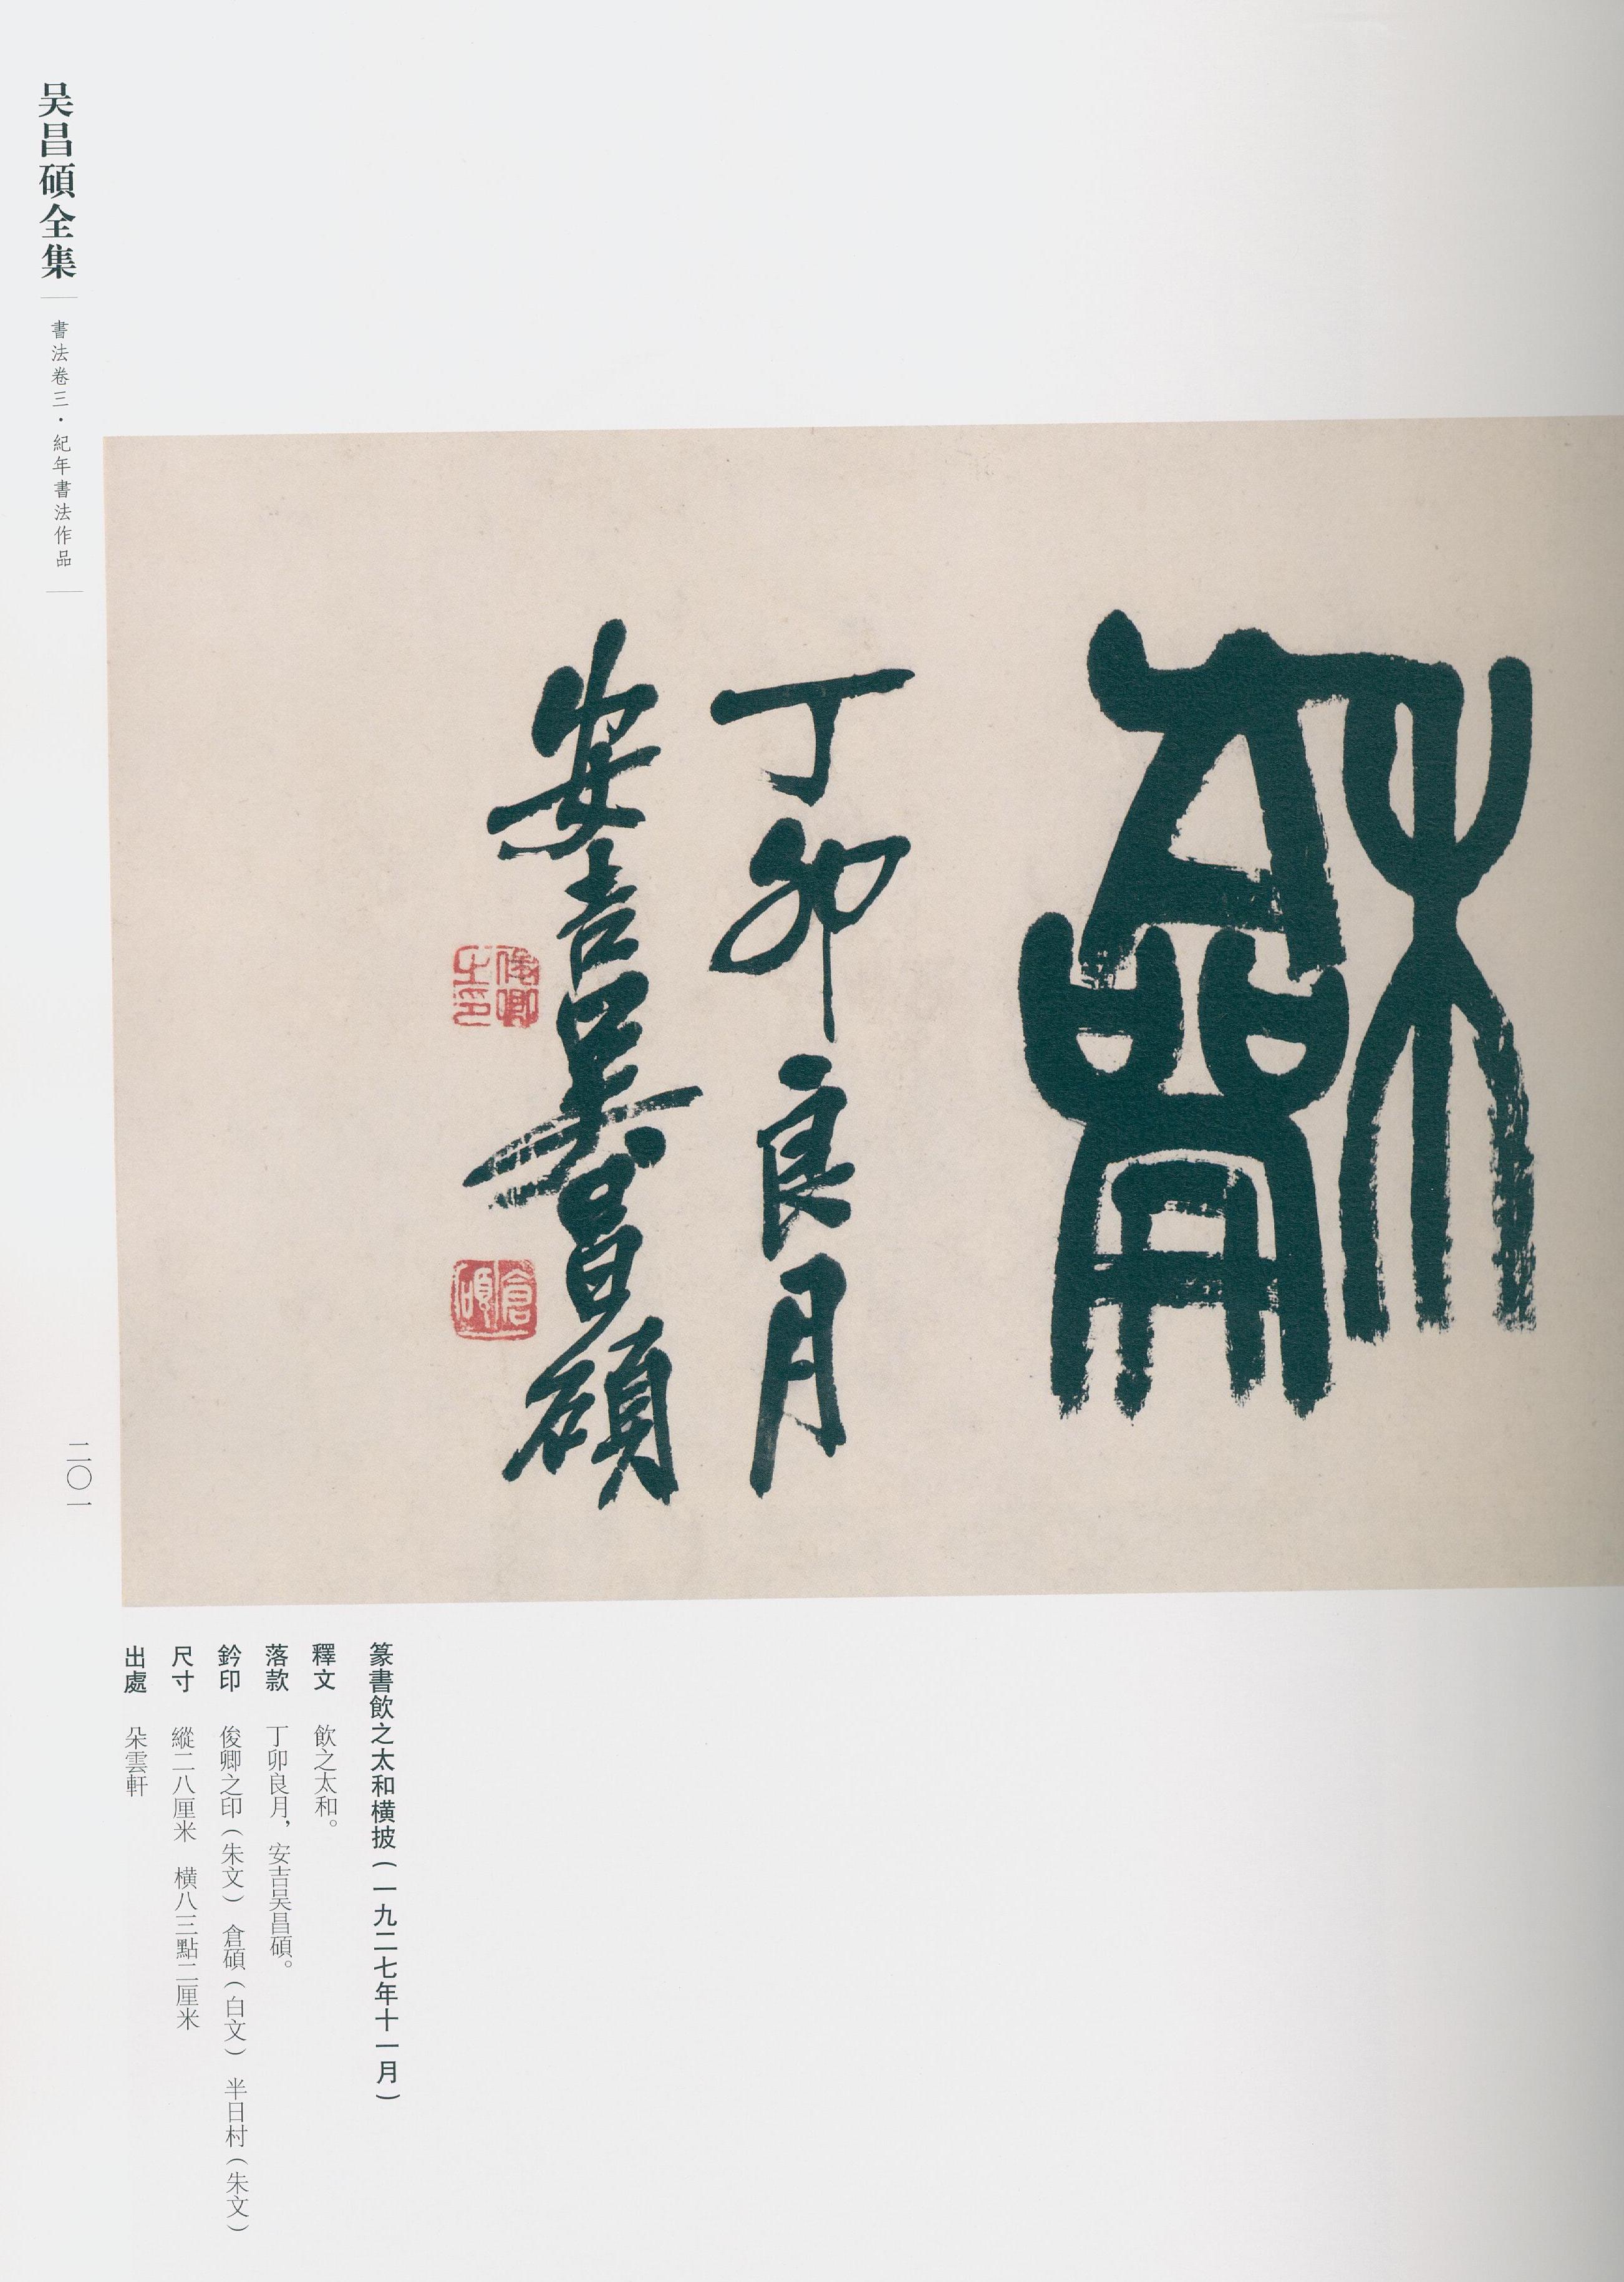 龢
丁卯良月
安吉吴昌碩
俊卿之印
倉碩
吴昌碩全集
書法卷三·紀年書法作品
二〇一
篆書飲之太和横披(一九二七年十一月)
釋文 飲之太和。
落款 丁卯良月,安吉吴昌碩。
鈐印 俊卿之印(朱文) 倉碩(白文) 半日村(朱文)
尺寸 縱二八厘米 橫八三點二厘米
出處 朵雲軒